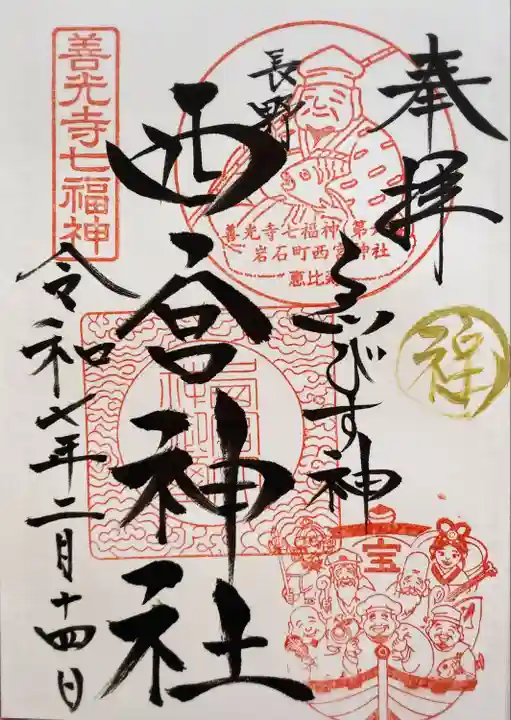 奉拝
善光寺七福神
長野
西宮神社
ゑびす神
善光寺七福神 第
岩石町西宮神社
恵比
福
宝
令和七年二月十四日